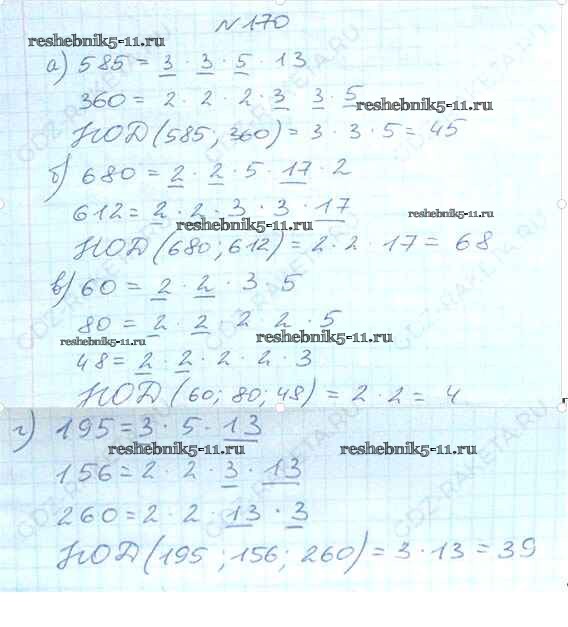 №170
reshebnik5-11.ru
а) 585 = 3 · 3 · 5 · 13
360 = 2 · 2 · 2 · 3 · 3 · 5
reshebnik5-11.ru
НОД (585; 360) = 3 · 3 · 5 = 45
б) 680 = 2 · 2 · 5 · 17 · 2
612 = 2 · 2 · 3 · 3 · 17
reshebnik5-11.ru
reshebnik5-11.ru
НОД (680; 612) = 2 · 2 · 17 = 68
в) 60 = 2 · 2 · 3 · 5
80 = 2 · 2 · 2 · 2 · 5
reshebnik5-11.ru
reshebnik5-11.ru
48 = 2 · 2 · 2 · 2 · 3
НОД (60; 80; 48) = 2 · 2 = 4
г) 195 = 3 · 5 · 13
reshebnik5-11.ru
reshebnik5-11.ru
156 = 2 · 2 · 3 · 13
260 = 2 · 2 · 13 · 3
НОД (195; 156; 260) = 3 · 13 = 39
GDZ-RAKETA.RU
GDZ-RAKETA.RU
GDZ-RAKETA.RU
GDZ-RAKETA.RU